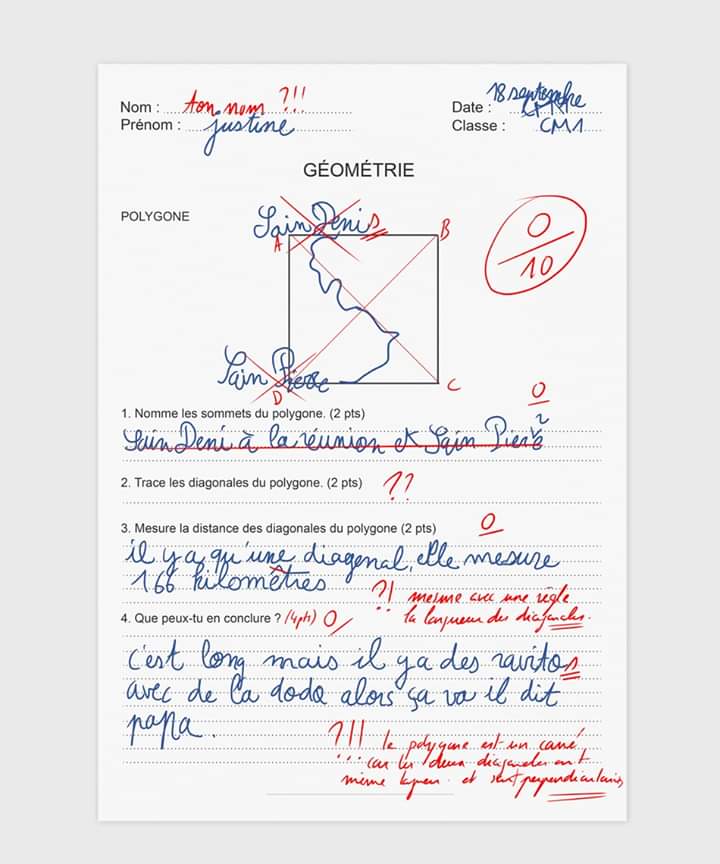 Nom : ton nom ?!!
Prénom : justine
Date : 18 septembre
Classe : CM1
GÉOMÉTRIE
POLYGONE
Sain Denis
A
B
0
10
Sain Pierre
D
C
0
2
1. Nomme les sommets du polygone. (2 pts)
Sain Deni à la réunion et Sain Piere
2. Trace les diagonales du polygone. (2 pts) ??
3. Mesure la distance des diagonales du polygone (2 pts) 0
il y a qu'une diagonal, elle mesure
166 kilomètres
?! mesure avec une règle
la longueur des diagonales.
4. Que peux-tu en conclure ? (4pts) 0
c'est long mais il y a des ravitos
avec de la dodo alors ça va il dit
papa.
?!! le polygone est un carré,
car les deux diagonales ont
même longueur et sont perpendiculaires